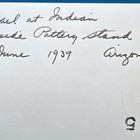 at Indian
Pottery stand
June 1939 Arizon
5